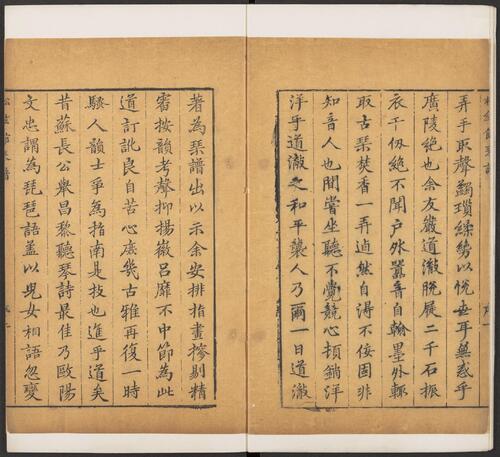 弄手取聲鷁瑣繰勢以悅世耳無惑乎
廣陵絕也余友嚴道澈脫屣二千石振
衣千仞絕不聞戶外囂音自翰墨外輒
取古琴焚香一弄逌然自淂不佞固非
知音人也閒嘗坐聽不覺競心頓銷洋
洋乎道澈之和平襲人乃爾一日道澈
著為琴譜出以示余安排指畫摻剔精
審按韻考聲抑揚徽呂靡不中節為此
道訂訛良自苦心庶幾古雅再復一時
騷人韻士爭為指南是技也進乎道矣
昔蘇長公舉昌黎聽琴詩最佳乃歐陽
文忠謂為琵琶語葢以兒女相語忽變